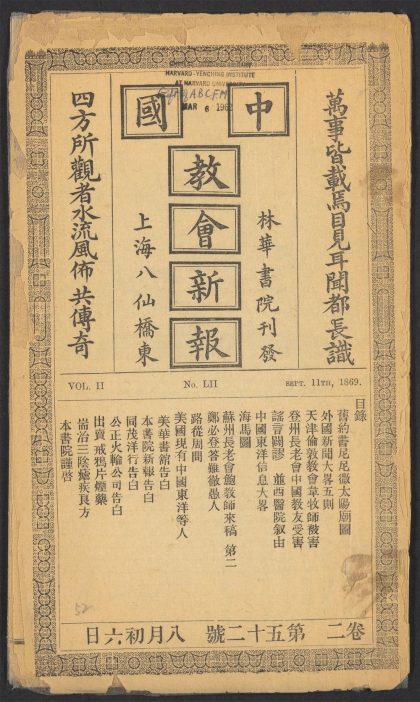 HARVARD-YENCHING INSTITUTE
AT HARVARD UNIVERSITY
MAR 6 1962
中國
教會新報
萬事皆載焉目見耳聞都長識
四方所觀者水流風佈共傳奇
林華書院刊發
上海八仙橋東
VOL. II No. LII SEPT. 11TH, 1869.
目錄
舊約書尼尼微太陽廟圖
外國新聞大畧五則
天津倫敦教會韋牧師被害
登州長老會中國教友受害
謠言闢謬 並西醫院叙由
中國東洋信息大畧
海馬圖
蘇州長老會鮑教師來稿 第二
鄭必登答難徹愚人
路從周問
美國現有中國東洋等人
美華書館告白
本書院新報告白
同茂洋行告白
公正火輪公司告白
出賣戒鴉片煙藥
耑治三陰瘧疾良方
本書院謹啓
卷二 第五十二號 八月初六日
52